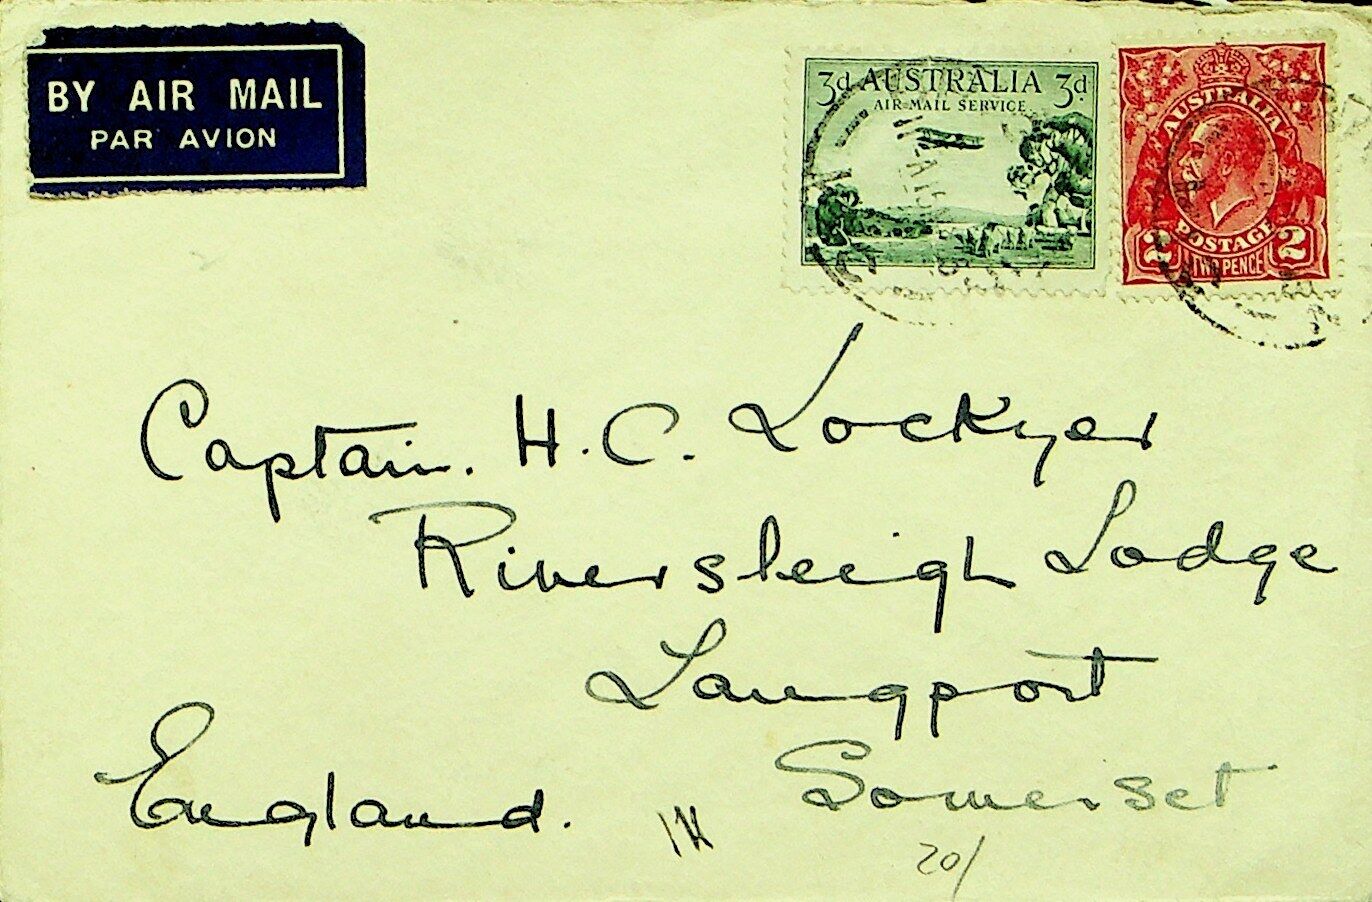 BY AIR MAIL
PAR AVION
3d AUSTRALIA 3d
AIR MAIL SERVICE
AUSTRALIA
POSTAGE
2 TWO PENCE 2
Captain. H. C. Lockyer
Riversleigh Lodge
Langport
Somerset
England.
20/